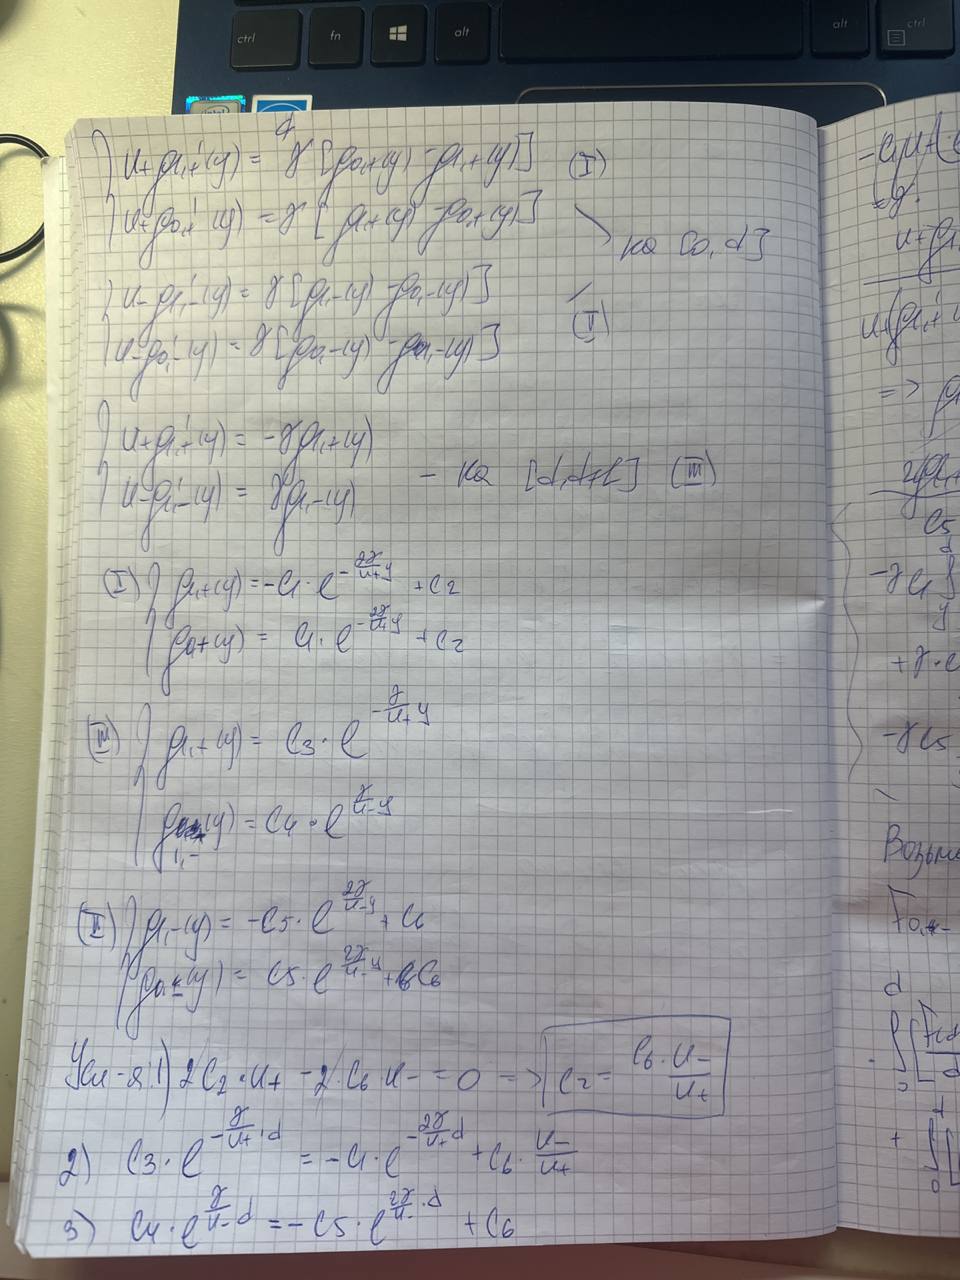 ctrl fn alt alt ctrl
u₊ρ₁,₊'(y) = γ[ρ₀,₊(y) - ρ₁,₊(y)] (I)
u₊ρ₀,₊'(y) = γ[ρ₁,₊(y) - ρ₀,₊(y)]
на [0, d]
u₋ρ₁,₋'(y) = γ[ρ₁,₋(y) - ρ₀,₋(y)]
(II)
u₋ρ₀,₋'(y) = γ[ρ₀,₋(y) - ρ₁,₋(y)]
u₊ρ₁,₊'(y) = -γρ₁,₊(y)
- на [d, d+L] (III)
u₋ρ₁,₋'(y) = γρ₁,₋(y)
(I) ρ₁,₊(y) = -C₁·e^{-\frac{2γ}{u₊}y} + C₂
ρ₀,₊(y) = C₁·e^{-\frac{2γ}{u₊}y} + C₂
(III) ρ₁,₊(y) = C₃·e^{-\frac{γ}{u₊}y}
ρ₁,₋(y) = C₄·e^{\frac{γ}{u₋}y}
(II) ρ₁,₋(y) = -C₅·e^{\frac{2γ}{u₋}y} + C₆
ρ₀,₋(y) = C₅·e^{\frac{2γ}{u₋}y} + C₆
Усл-я: 1) 2C₂·u₊ - 2·C₆·u₋ = 0 => C₂ = \frac{C₆·u₋}{u₊}
2) C₃·e^{-\frac{γ}{u₊}·d} = -C₁·e^{-\frac{2γ}{u₊}d} + C₆·\frac{u₋}{u₊}
3) C₄·e^{\frac{γ}{u₋}d} = -C₅·e^{\frac{2γ}{u₋}·d} + C₆
=>
C₅
-γC₁
y
-γC₅
d